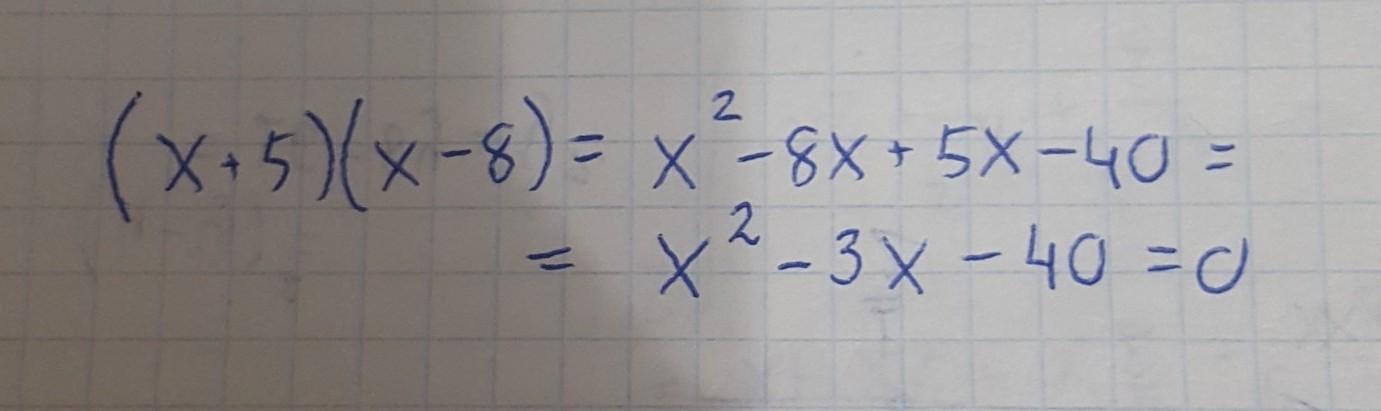 (x+5)(x-8)= x²-8x+5x-40=
= x²-3x-40=0